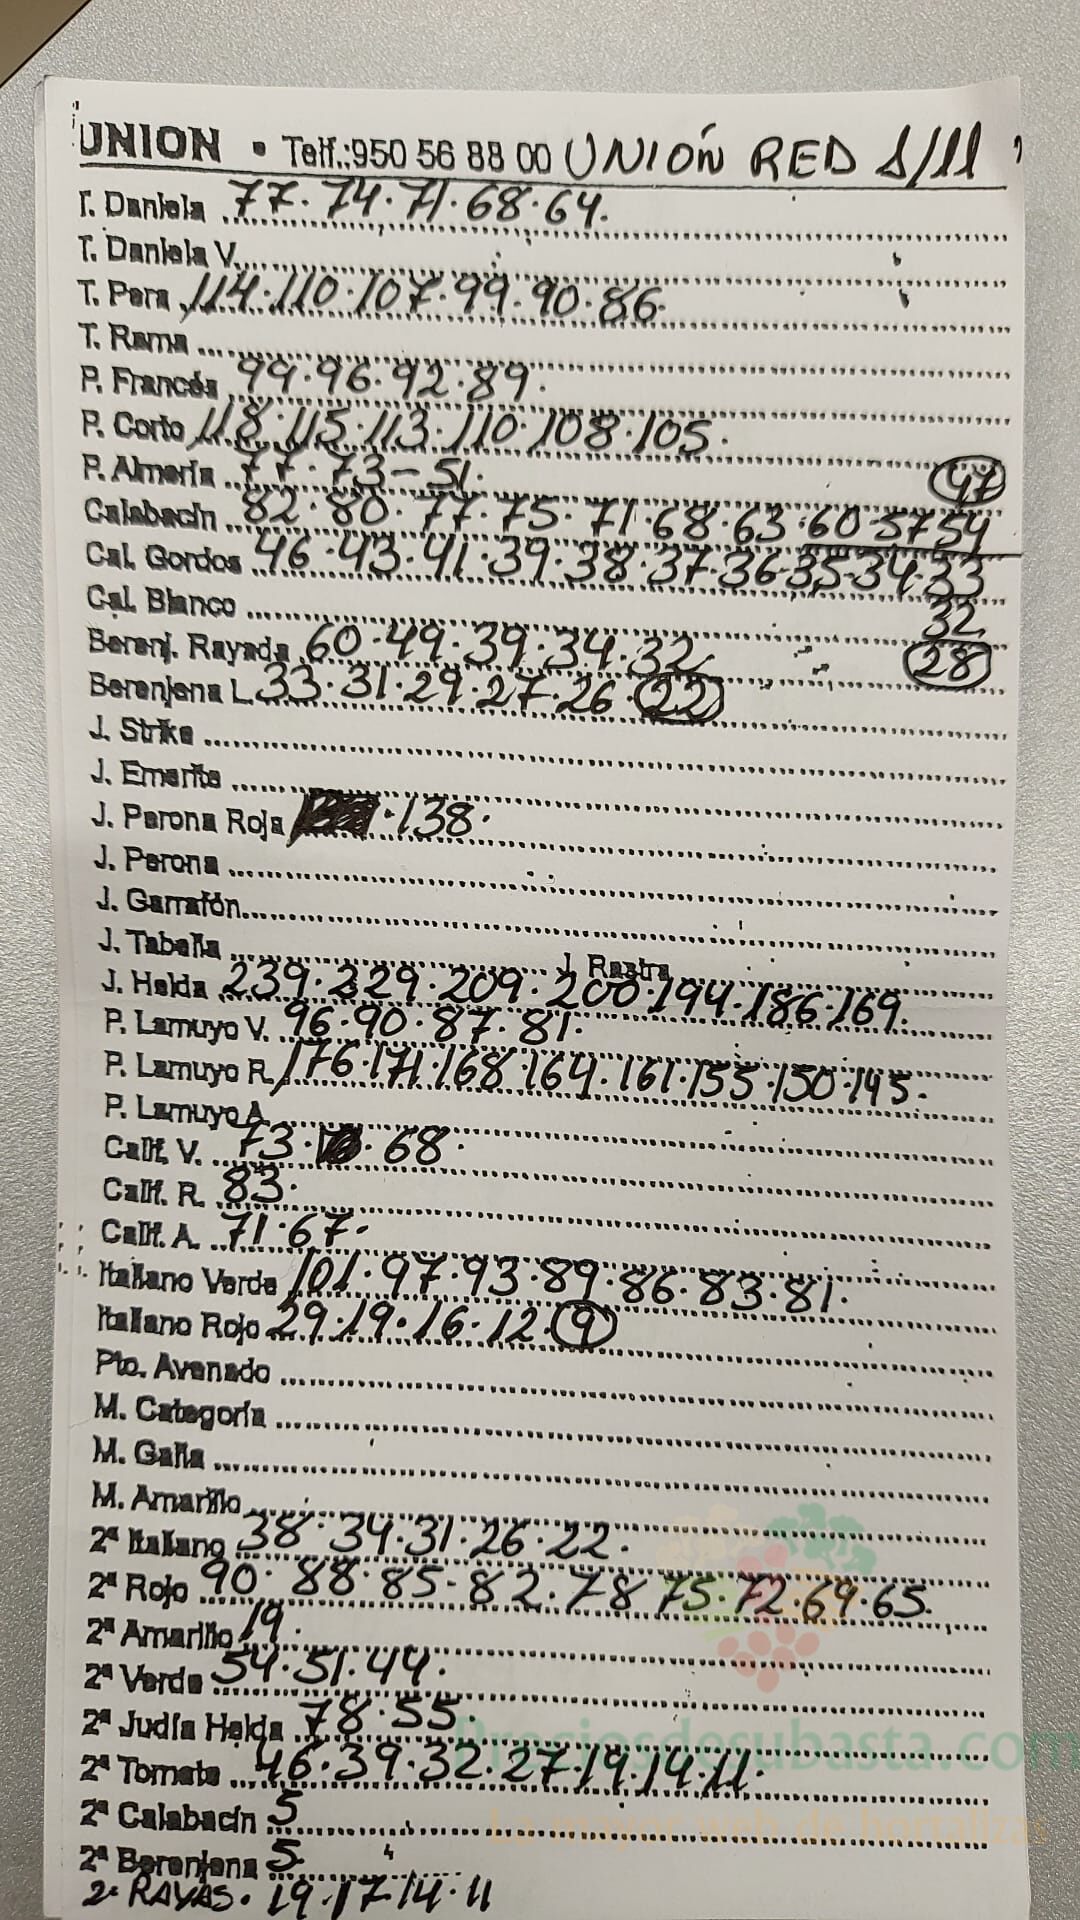 UNION • Telf.:950 56 88 00 UNIÓN RED 1/11
T. Daniela 77·74·71·68·64.
T. Daniela V.
T. Pera 114·110·107·99·90·86.
T. Rama
P. Francés 99·96·92·89.
P. Corto 118·115·113·110·108·105.
P. Almería 77·73-51. 47
Calabacín 82·80·77·75·71·68·63·60-57 54
Cal. Gordos 46·43·41·39·38·37·36·35·34·33
Cal. Blanco 32
Berenj. Rayada 60·49·39·34·32. 28
Berenjena L. 33·31·29·27·26·22
J. Strike
J. Emerite
J. Perona Roja ·138.
J. Perona
J. Garrafón
J. Tabella J. Rastra
J. Helda 239·229·209·200·194·186·169.
P. Lamuyo V. 96·90·87·81.
P. Lamuyo R. 176·171·168·164·161·155·150·145.
P. Lamuyo A.
Calif. V. 73··68.
Calif. R. 83.
Calif. A. 71·67.
Italiano Verde 101·97·93·89·86·83·81.
Italiano Rojo 29·19·16·12·9
Pto. Avenado
M. Categoría
M. Galia
M. Amarillo
2ª Italiano 38·34·31·26·22.
2ª Rojo 90·88·85-82·78 75·72·69·65.
2ª Amarillo 19.
2ª Verde 54·51·44.
2ª Judía Helda 78·55.
2ª Tomate 46·39·32·27·19·14·11.
2ª Calabacín 5
2ª Berenjena 5.
2ª RAYAS· 19·17·14·11
Preciosdesubasta.com
La mayor web de hortalizas